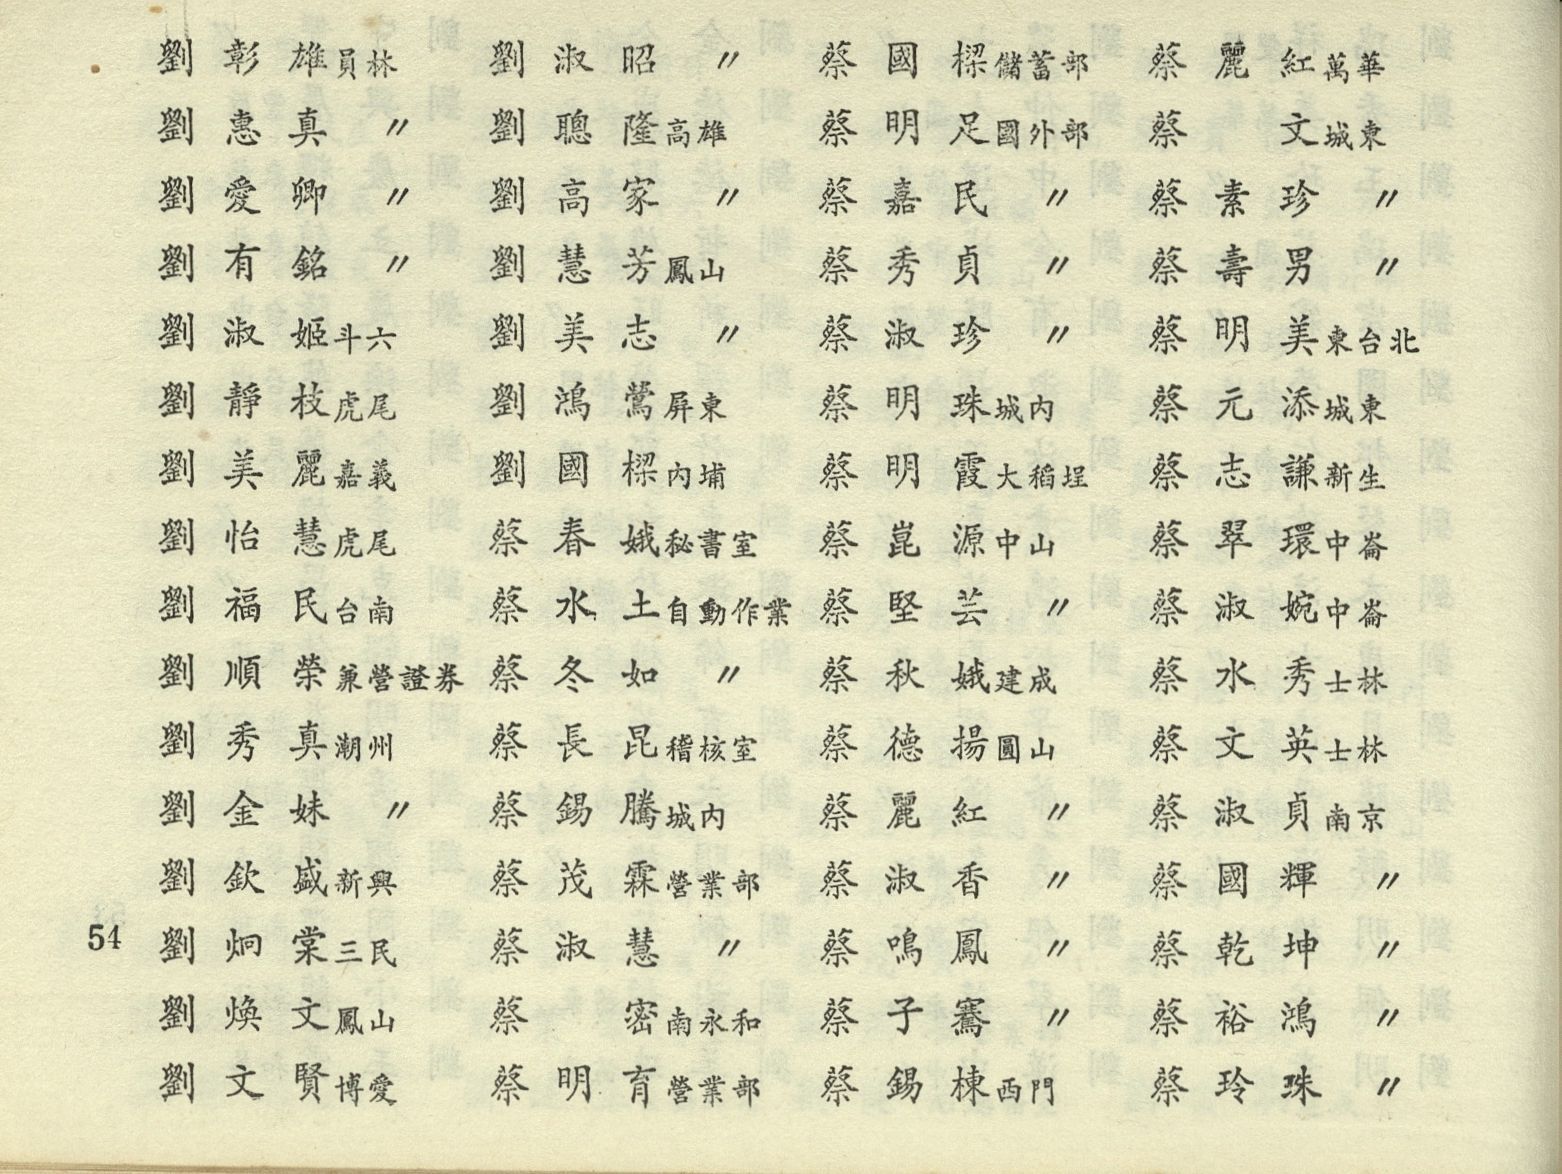 劉彰雄員林
劉惠真〃
劉愛卿〃
劉有銘〃
劉淑姬斗六
劉靜枝虎尾
劉美麗嘉義
劉怡慧虎尾
劉福民台南
劉順榮兼營證券
劉秀真潮州
劉金妹〃
劉欽盛新興
劉炯棠三民
劉煥文鳳山
劉文賢博愛
劉淑昭〃
劉聰隆高雄
劉高家〃
劉慧芳鳳山
劉美志〃
劉鴻鶯屏東
劉國樑內埔
蔡春娥秘書室
蔡水土自動作業
蔡冬如〃
蔡長昆稽核室
蔡錫騰城內
蔡茂霖營業部
蔡淑慧〃
蔡密南永和
蔡明育營業部
蔡國樑儲蓄部
蔡明足國外部
蔡嘉民〃
蔡秀貞〃
蔡淑珍〃
蔡明珠城內
蔡明霞大稻埕
蔡崑源中山
蔡堅芸〃
蔡秋娥建成
蔡德揚圓山
蔡麗紅〃
蔡淑香〃
蔡鳴鳳〃
蔡子騫〃
蔡錫棟西門
蔡麗紅萬華
蔡文城東
蔡素珍〃
蔡壽男〃
蔡明美東台北
蔡元添城東
蔡志謙新生
蔡翠環中崙
蔡淑婉中崙
蔡水秀士林
蔡文英士林
蔡淑貞南京
蔡國輝〃
蔡乾坤〃
蔡裕鴻〃
蔡玲珠〃
54